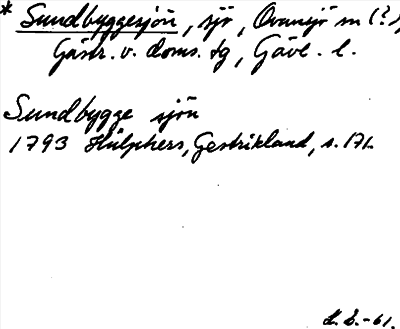 * Sundbyggesjön, sjö, Ovansjö sn (?),
Gästr. v. doms. tg, Gävl. l.
Sundbygge sjön
1793 Hülphers, Gestrikland, s. 171.
-61.